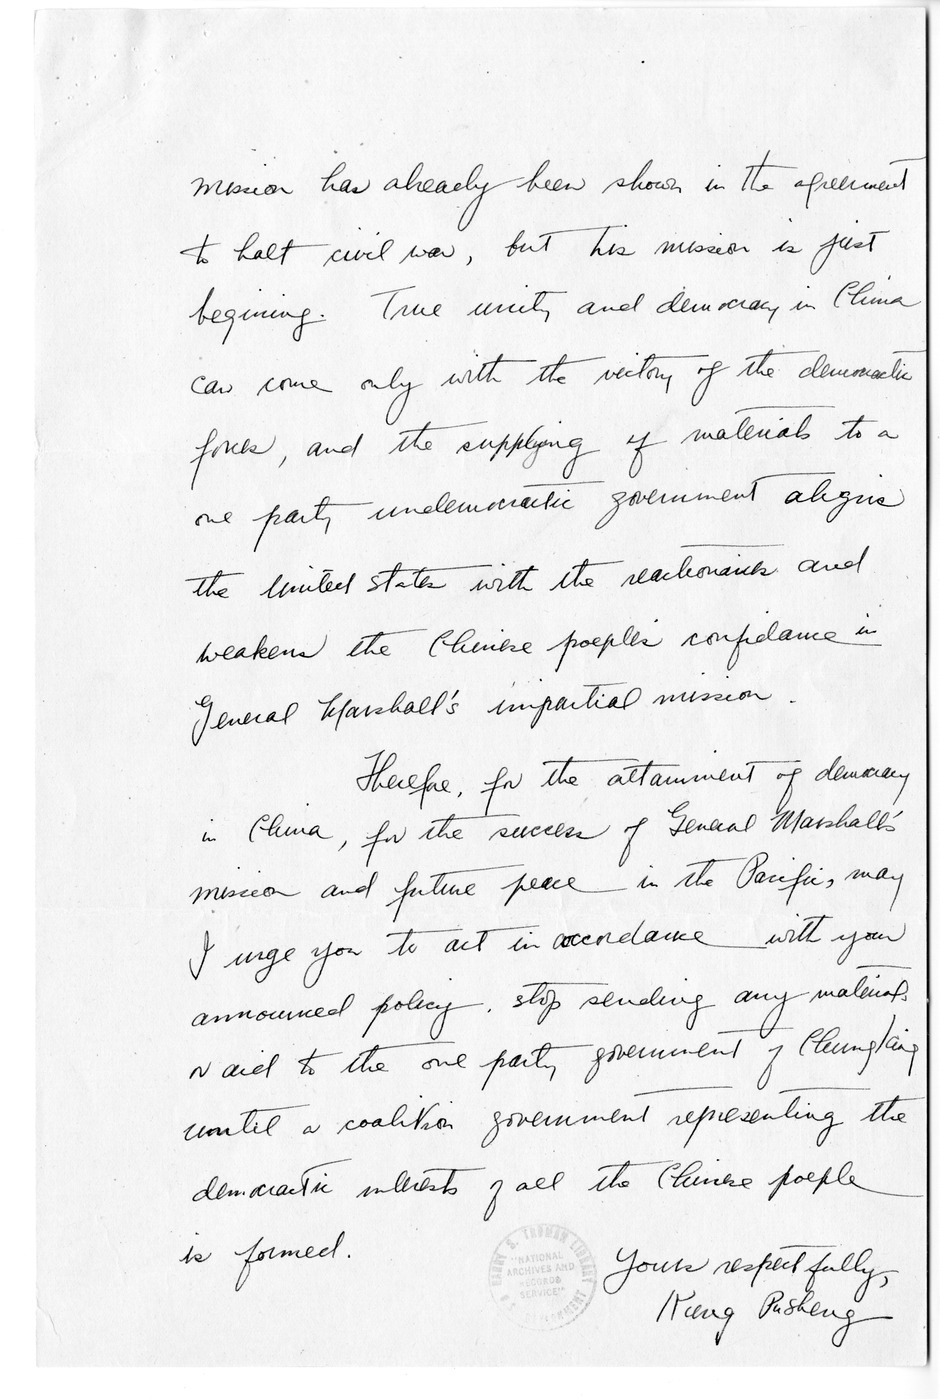 mission has already been shown in the agreement
to halt civil war, but his mission is just
begining. True unity and democracy in China
can come only with the victory of the democratic
forces, and the supplying of materials to a
one party undemocratic government aligns
the United States with the reactionaries and
weakens the Chinese poeple's confidance in
General Marshall's impartial mission.
Therefore, for the attainment of democracy
in China, for the success of General Marshall's
mission and future peace in the Pacific, may
I urge you to act in accordance with your
announced policy, stop sending any materials
or aid to the one party government of Chungking
until a coalition government representing the
democratic interests of all the Chinese poeple
is formed.
Yours respectfully,
Kung Pusheng
HARRY S. TRUMAN LIBRARY
"NATIONAL
ARCHIVES AND
RECORDS
SERVICE"